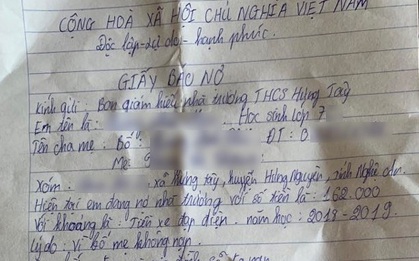 CỘNG HOÀ XÃ HỘI CHỦ NGHĨA VIỆT NAM
Độc lập - tự do - hạnh phúc.
GIẤY BÁO NỢ
Kính gửi: Ban giám hiệu nhà trường THCS Hưng Tây
Em tên là: Học sinh lớp 7
Tên cha mẹ: Bố: ĐT: 0
Mẹ:
Xóm: , xã Hưng Tây, huyện Hưng Nguyên, tỉnh Nghệ An.
Hiện tại em đang nợ nhà trường với số tiền là: 162.000
Với khoảng là: Tiền xe đạp điện. năm học: 2018 - 2019.
Lý do: Vì bố mẹ không nạp.